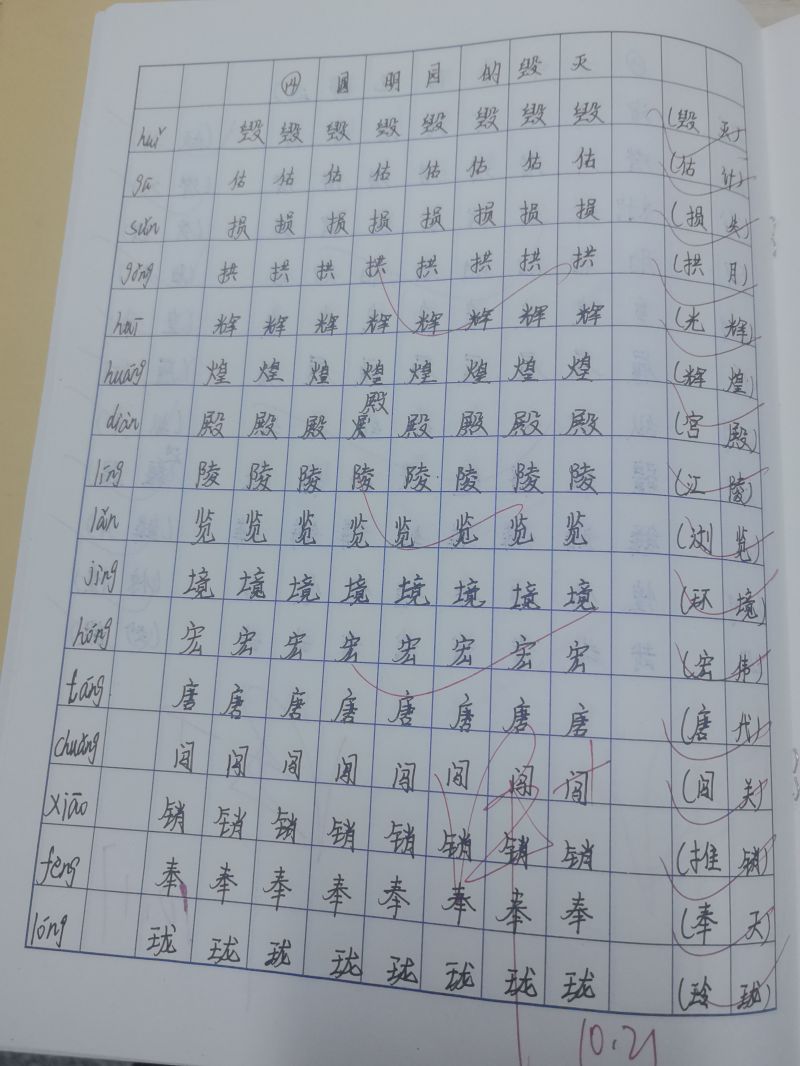 ⑭ 圆明园的毁灭
huǐ 毁毁毁毁毁毁毁毁 (毁灭)
gū 估估估估估估估估 (估计)
sǔn 损损损损损损损损 (损失)
gǒng 拱拱拱拱拱拱拱拱 (拱月)
huī 辉辉辉辉辉辉辉辉 (光辉)
huáng 煌煌煌煌煌煌煌煌 (辉煌)
diàn 殿殿殿殿殿殿殿殿 (宫殿)
líng 陵陵陵陵陵陵陵陵 (江陵)
lǎn 览览览览览览览览 (浏览)
jìng 境境境境境境境境 (环境)
hóng 宏宏宏宏宏宏宏宏 (宏伟)
táng 唐唐唐唐唐唐唐唐 (唐代)
chuǎng 闯闯闯闯闯闯闯闯 (闯关)
xiāo 销销销销销销销销 (推销)
feng 奉奉奉奉奉奉奉奉 (奉天)
lóng 珑珑珑珑珑珑珑珑 (玲珑)
10.21